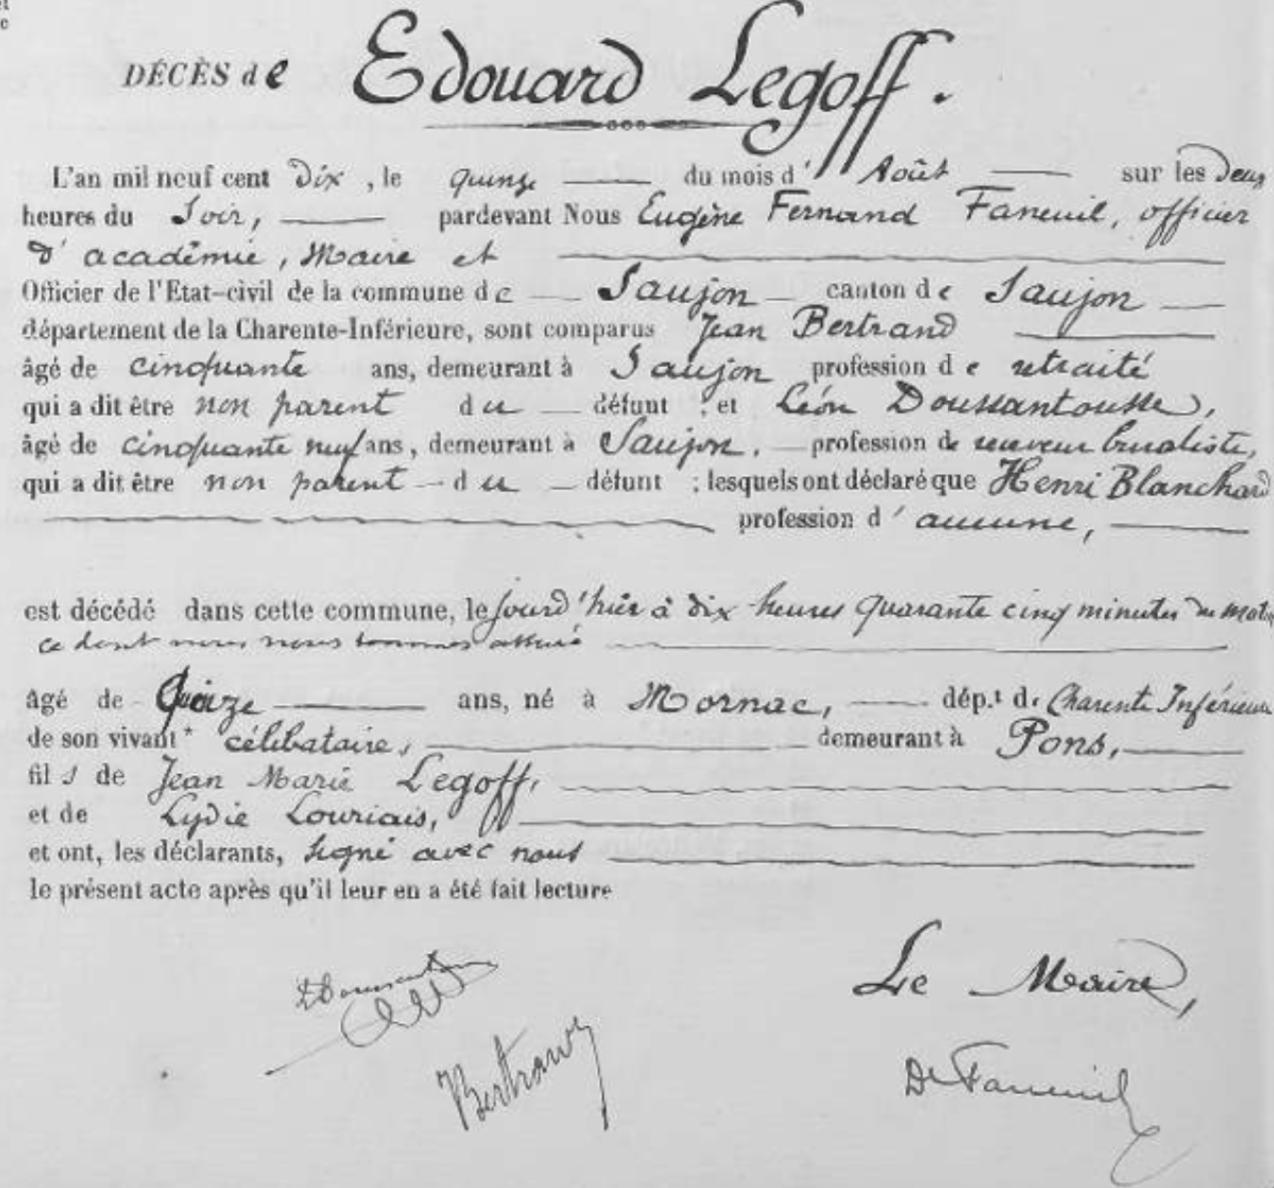 DÉCÈS de Edouard Legoff.
L'an mil neuf cent Dix, le quinze du mois d'Août sur les Deux
heures du Soir, pardevant Nous Eugène Fernand Faneuil, officier
D'académie, Maire et
Officier de l'Etat-civil de la commune de Saujon canton de Saujon
département de la Charente-Inférieure, sont comparus Jean Bertrand
âgé de cinquante ans, demeurant à Saujon profession de retraité
qui a dit être non parent du défunt ; et Léon Doussantousse,
âgé de cinquante neuf ans, demeurant à Saujon. profession de receveur buraliste,
qui a dit être non parent du défunt ; lesquels ont déclaré que Henri Blanchard
profession d'aucune,
est décédé dans cette commune, le jourd'hier à dix heures quarante cinq minutes du matin
ce dont nous nous sommes assuré
âgé de Quinze ans, né à Mornac, dép.t de Charente Inférieure
de son vivant* célibataire, demeurant à Pons,
fils de Jean Marie Legoff,
et de Lydie Louriais,
et ont, les déclarants, signé avec nous
le présent acte après qu'il leur en a été fait lecture
Le Maire,
Bertrand
Dr Faneuil